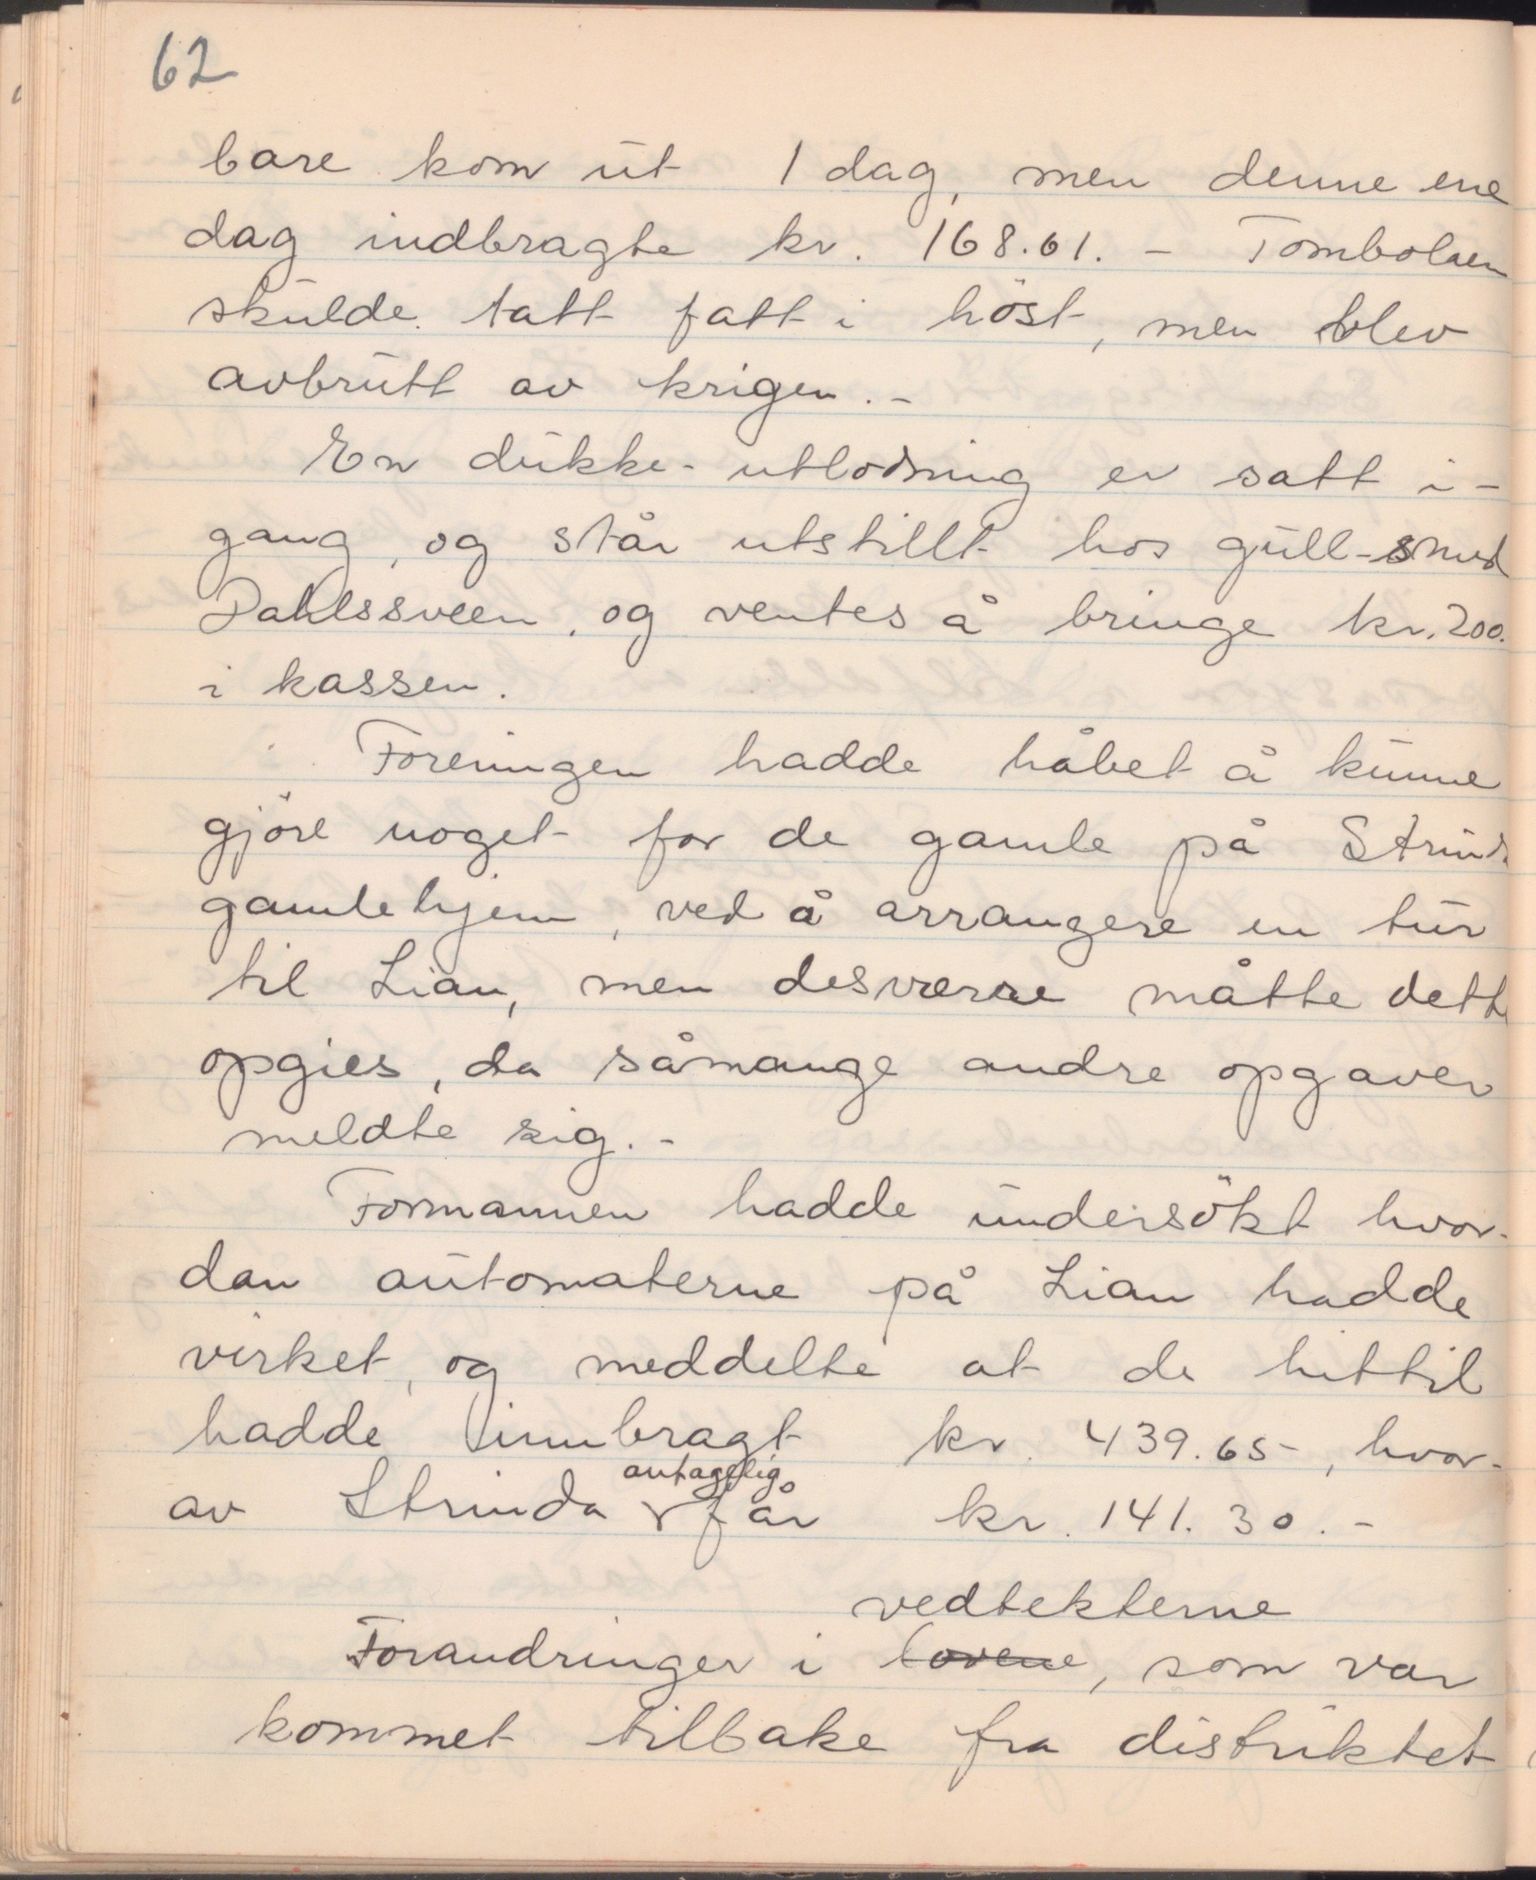 62
bare kom ut 1 dag, men denne ene
dag indbragte kr. 168.61. - Tombolaen
skulde tatt fatt i höst, men blev
avbrutt av krigen. -
En dukke-utlodning er satt i-
gang, og står utstillt hos gull-smed
Dahlssveen, og ventes å bringe kr. 200.
i kassen.
Foreningen hadde håbet å kunne
gjöre noget for de gamle på Strinda
gamlehjem, ved å arrangere en tur
til Lian, men desværre måtte dette
opgies, da såmange andre opgaver
meldte sig. -
Formannen hadde undersökt hvor-
dan automaterne på Lian hadde
virket, og meddelte at de hittil
hadde innbragt kr. 439.65-, hvor-
antagelig
av Strinda får kr. 141.30. -
vedtekterne
Forandringer i lovene, som var
kommet tilbake fra distriktet